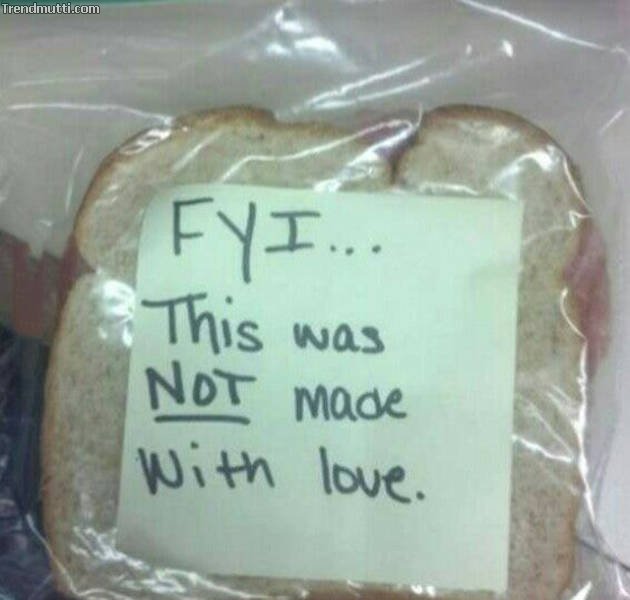 Trendmutti.com
FYI...
This was
NOT made
With love.